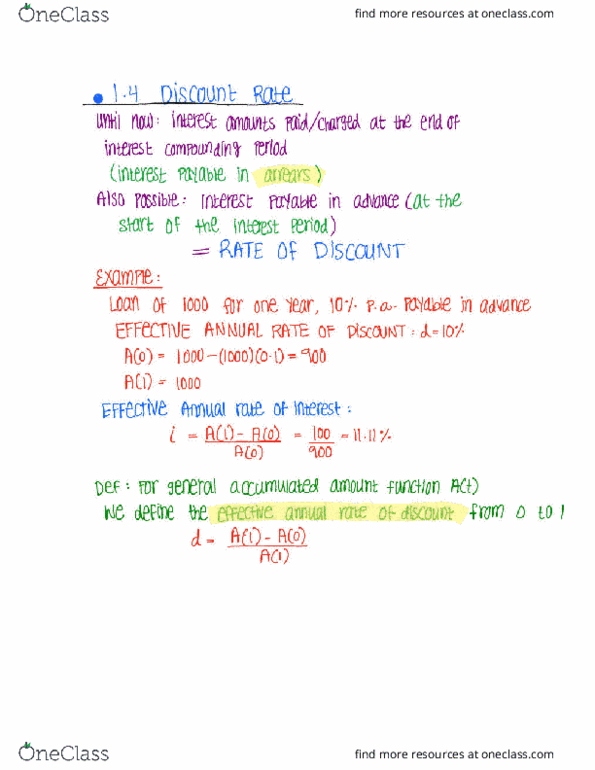 OneClass
find more resources at oneclass.com
• 1.4 Discount Rate
Until now: interest amounts paid/charged at the end of
interest compounding period
(interest payable in arrears)
Also possible: interest payable in advance (at the
start of the interest period)
= RATE OF DISCOUNT
Example:
Loan of 1000 for one year, 10% p.a. payable in advance
EFFECTIVE ANNUAL RATE OF DISCOUNT: d=10%
A(0) = 1000-(1000)(0.1) = 900
A(1) = 1000
Effective Annual rate of interest:
i = A(1) - A(0) / A(0) = 100 / 900 = 11.11%
Def: For general accumulated amount function A(t)
we define the effective annual rate of discount from 0 to 1
d = A(1) - A(0) / A(1)
OneClass
find more resources at oneclass.com